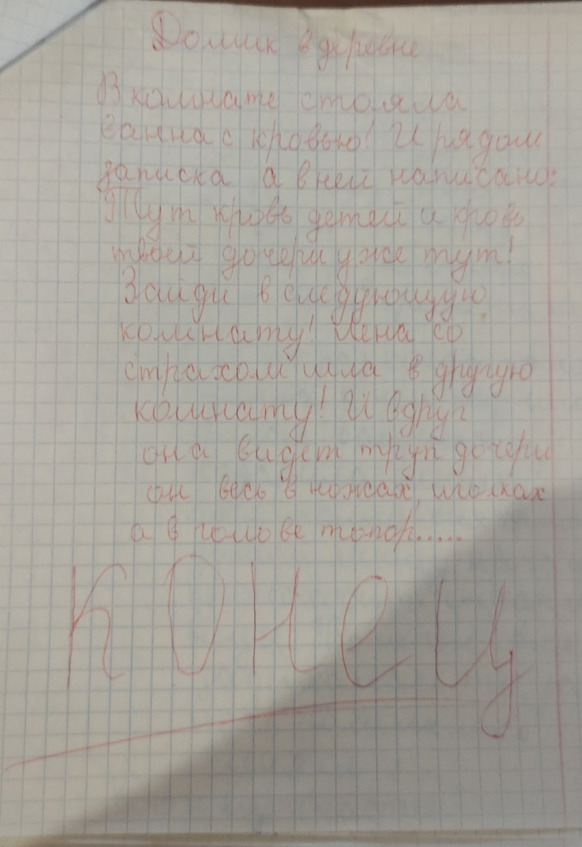 Домик в деревне
В комнате стояла
ванна с кровью! И рядом
записка а в ней написано:
Тут кровь детей и кровь
твоей дочери уже тут!
Зайди в следующую
комнату! Лена со
страхом шла в другую
комнату! И вдруг
она видет труп дочери
он весь в ножах, иголках
а в голове топор.....
конец